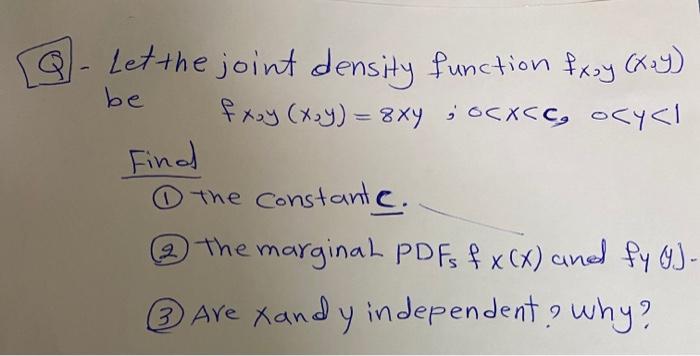 Q - Let the joint density function fx,y (x,y)
be fx,y (x,y) = 8xy ; 0<x<c, 0<y<1
Find
① the constant c.
② the marginal PDFs fx(x) and fy(y).
③ Are x and y independent? why?